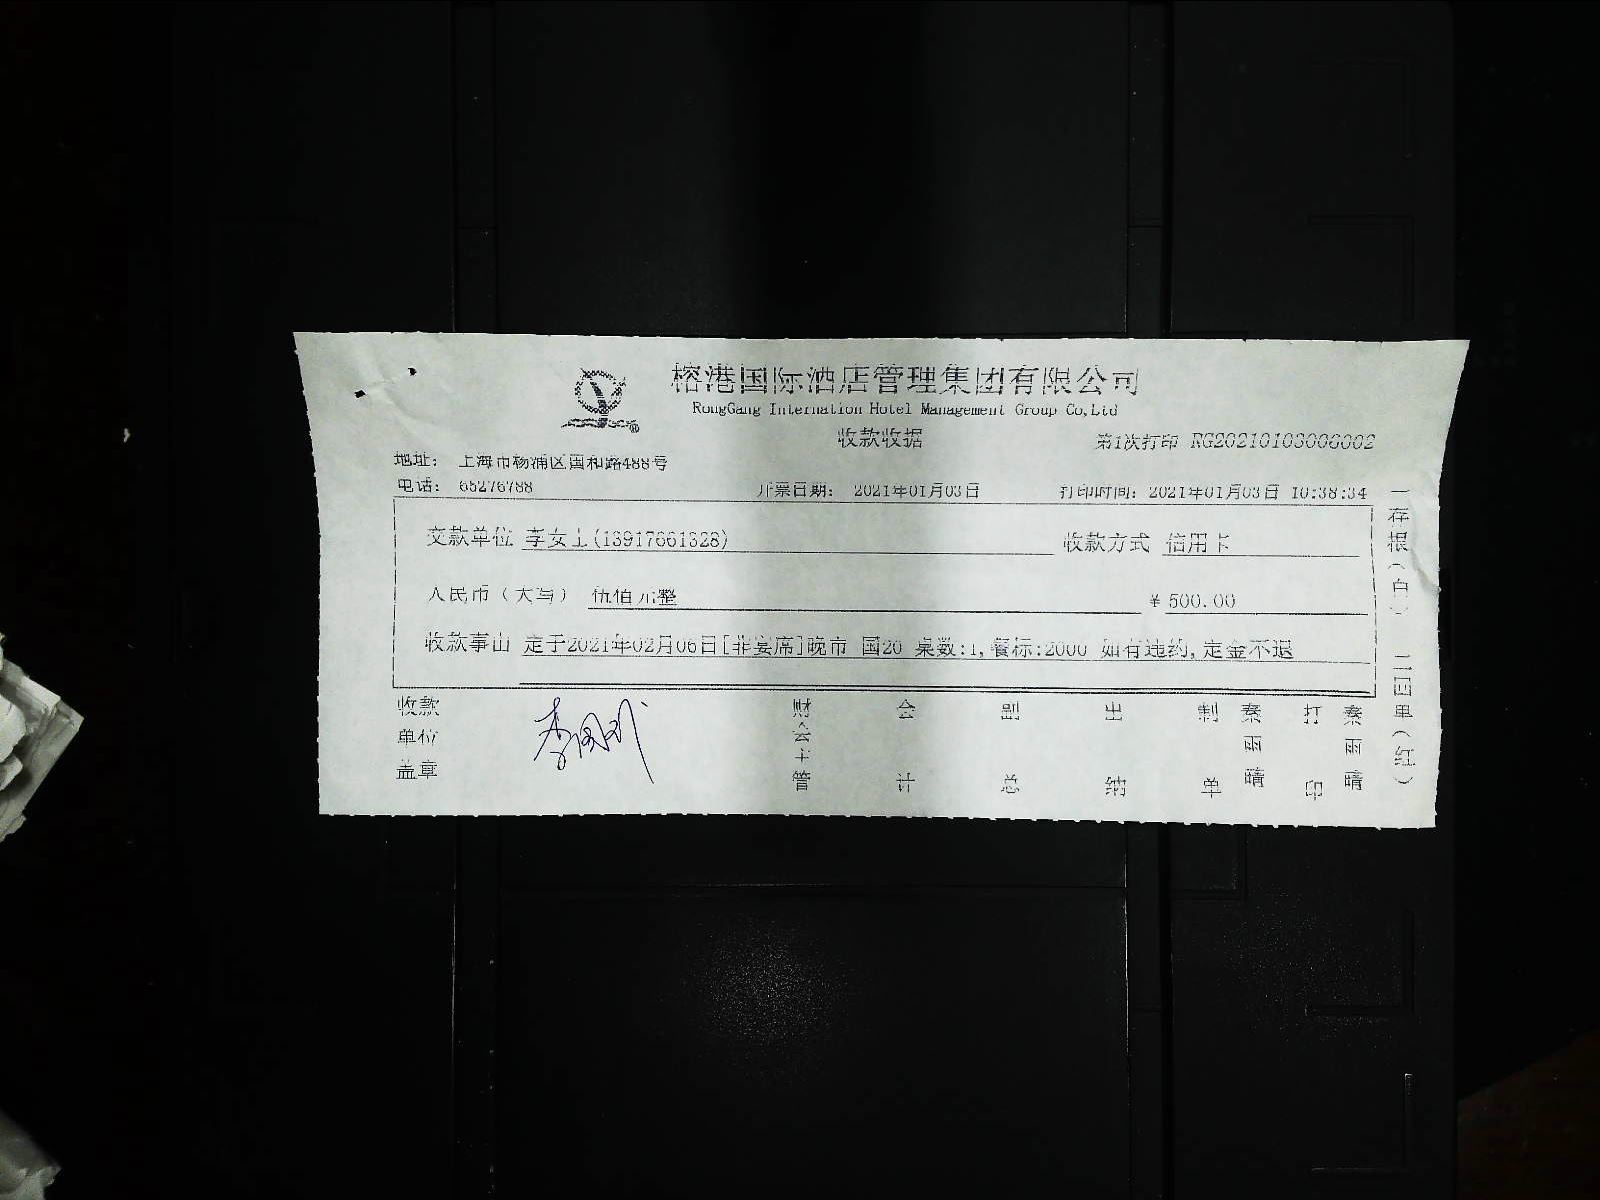 榕港国际酒店管理集团有限公司
RongGang Internation Hotel Management Group Co,Ltd
收款收据
第1次打印 RG20210103006002
地址： 上海市杨浦区国和路488号
电话： 65276788
开票日期： 2021年01月03日
打印时间：2021年01月03日 10:38:34
交款单位 李女士(13917661328)
收款方式 信用卡
人民币（大写） 伍佰元整
￥500.00
收款事由 定于2021年02月06日[非宴席]晚市 国20 桌数:1,餐标:2000 如有违约,定金不退
收款单位盖章
财会主管
会计
副总
出纳
制单 秦雨晴
打印 秦雨晴
一存根（白） 二回单（红）